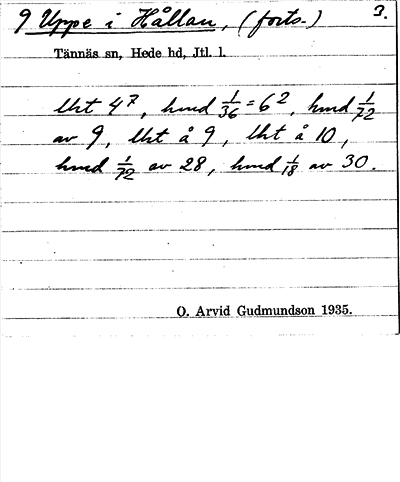 9 Uppe i Hållan, (forts.) 3.
Tännäs sn, Hede hd, Jtl. l.
lht 4⁷, hmd 1/36 = 6², hmd 1/72
av 9, lht å 9, lht å 10,
hmd 1/72 av 28, hmd 1/18 av 30.
O. Arvid Gudmundson 1935.